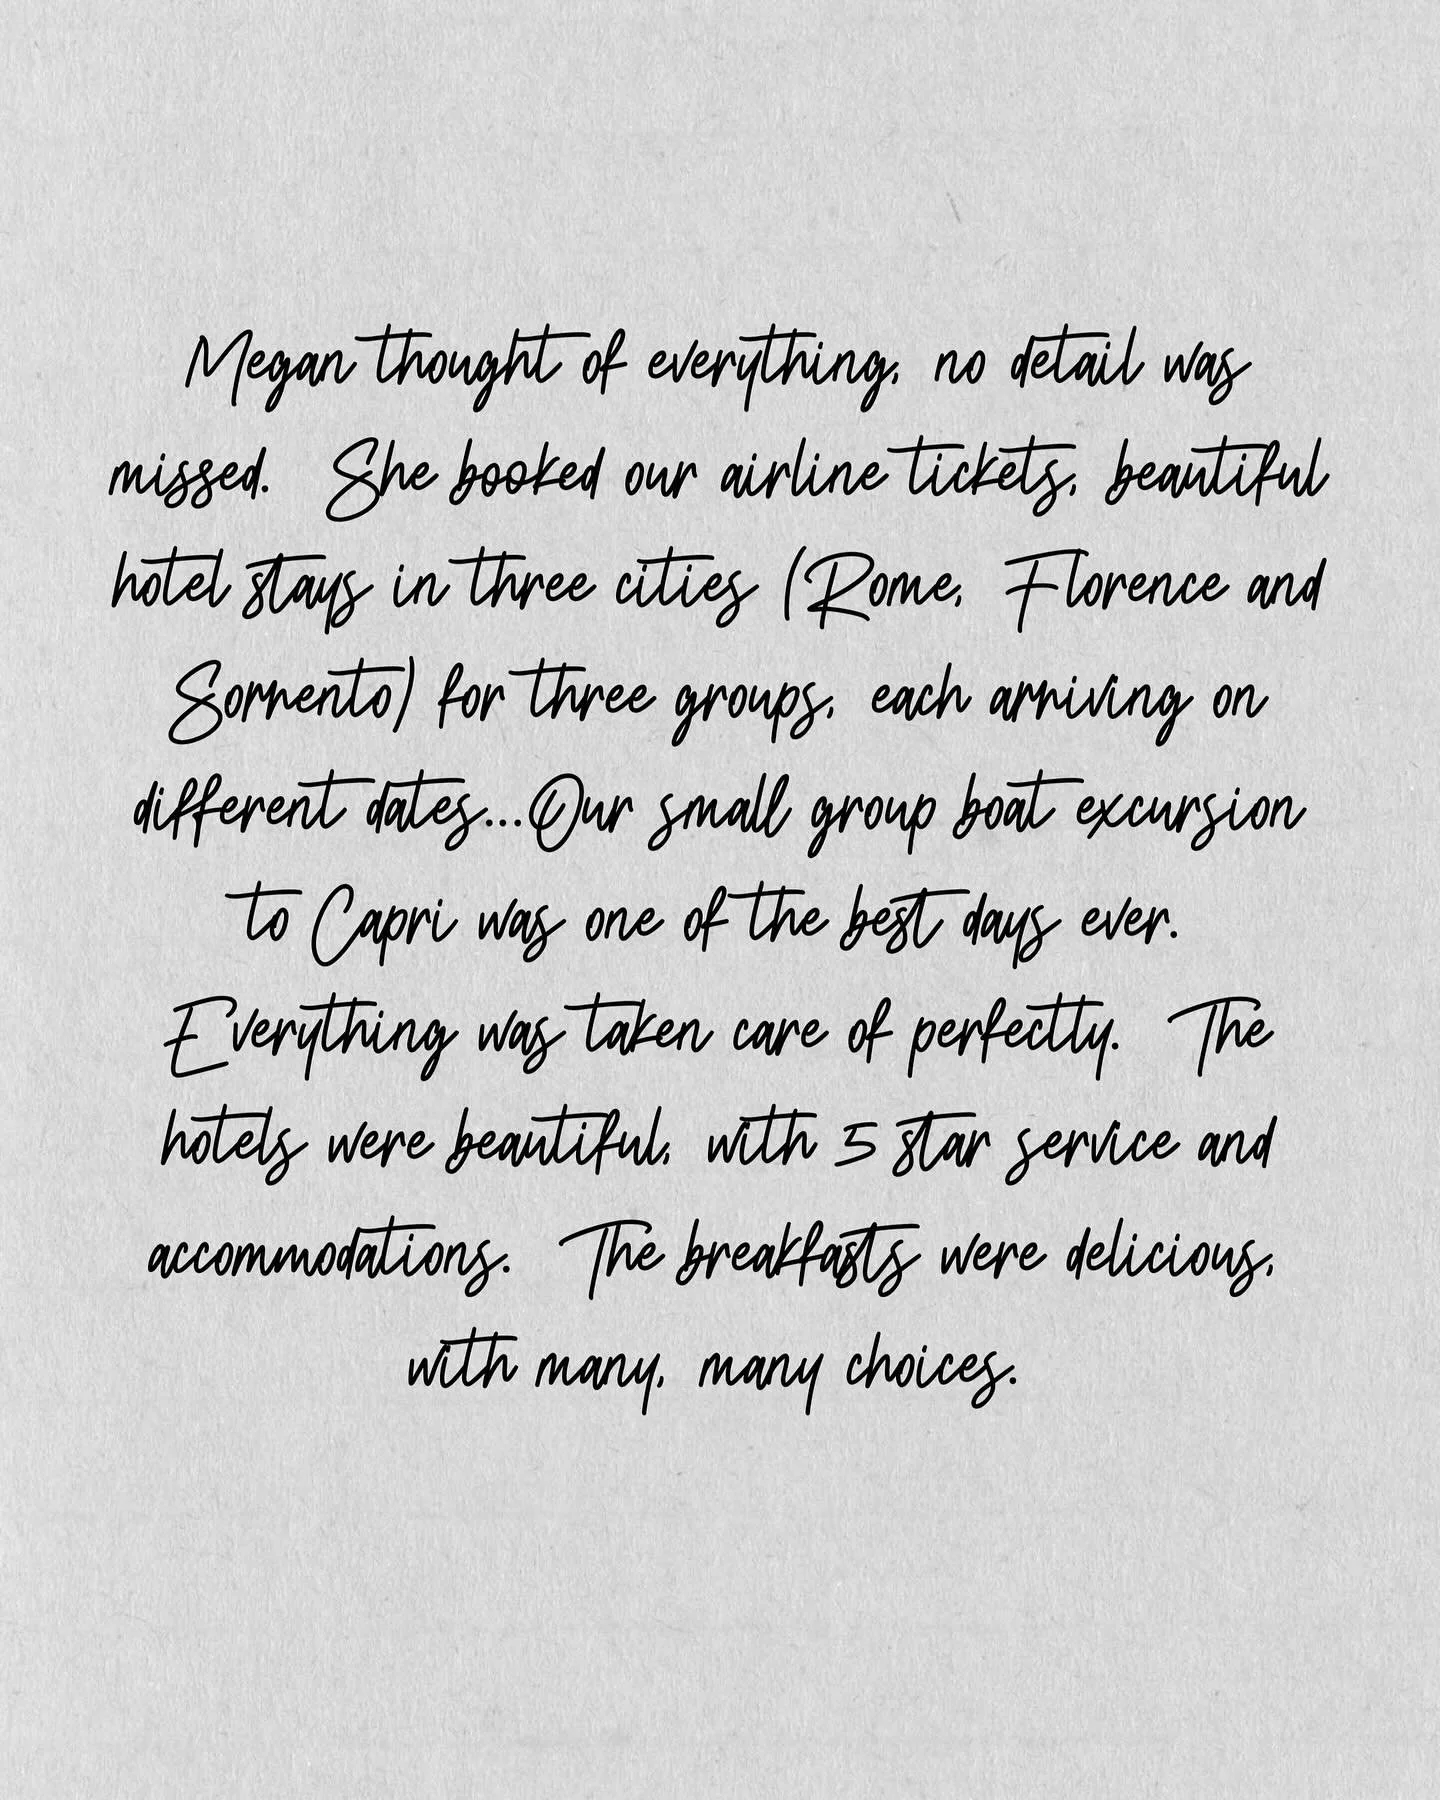 Megan thought of everything, no detail was
missed. She booked our airline tickets, beautiful
hotel stays in three cities (Rome, Florence and
Sorrento) for three groups, each arriving on
different dates...Our small group boat excursion
to Capri was one of the best days ever.
Everything was taken care of perfectly. The
hotels were beautiful, with 5 star service and
accommodations. The breakfasts were delicious,
with many, many choices.